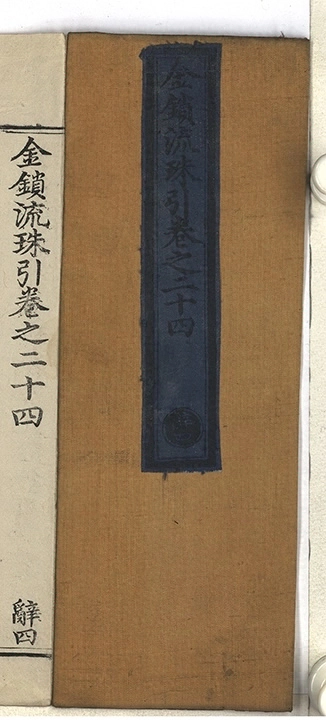 金鎖流珠引卷之二十四
金鎖流珠引卷之二十四
辭四